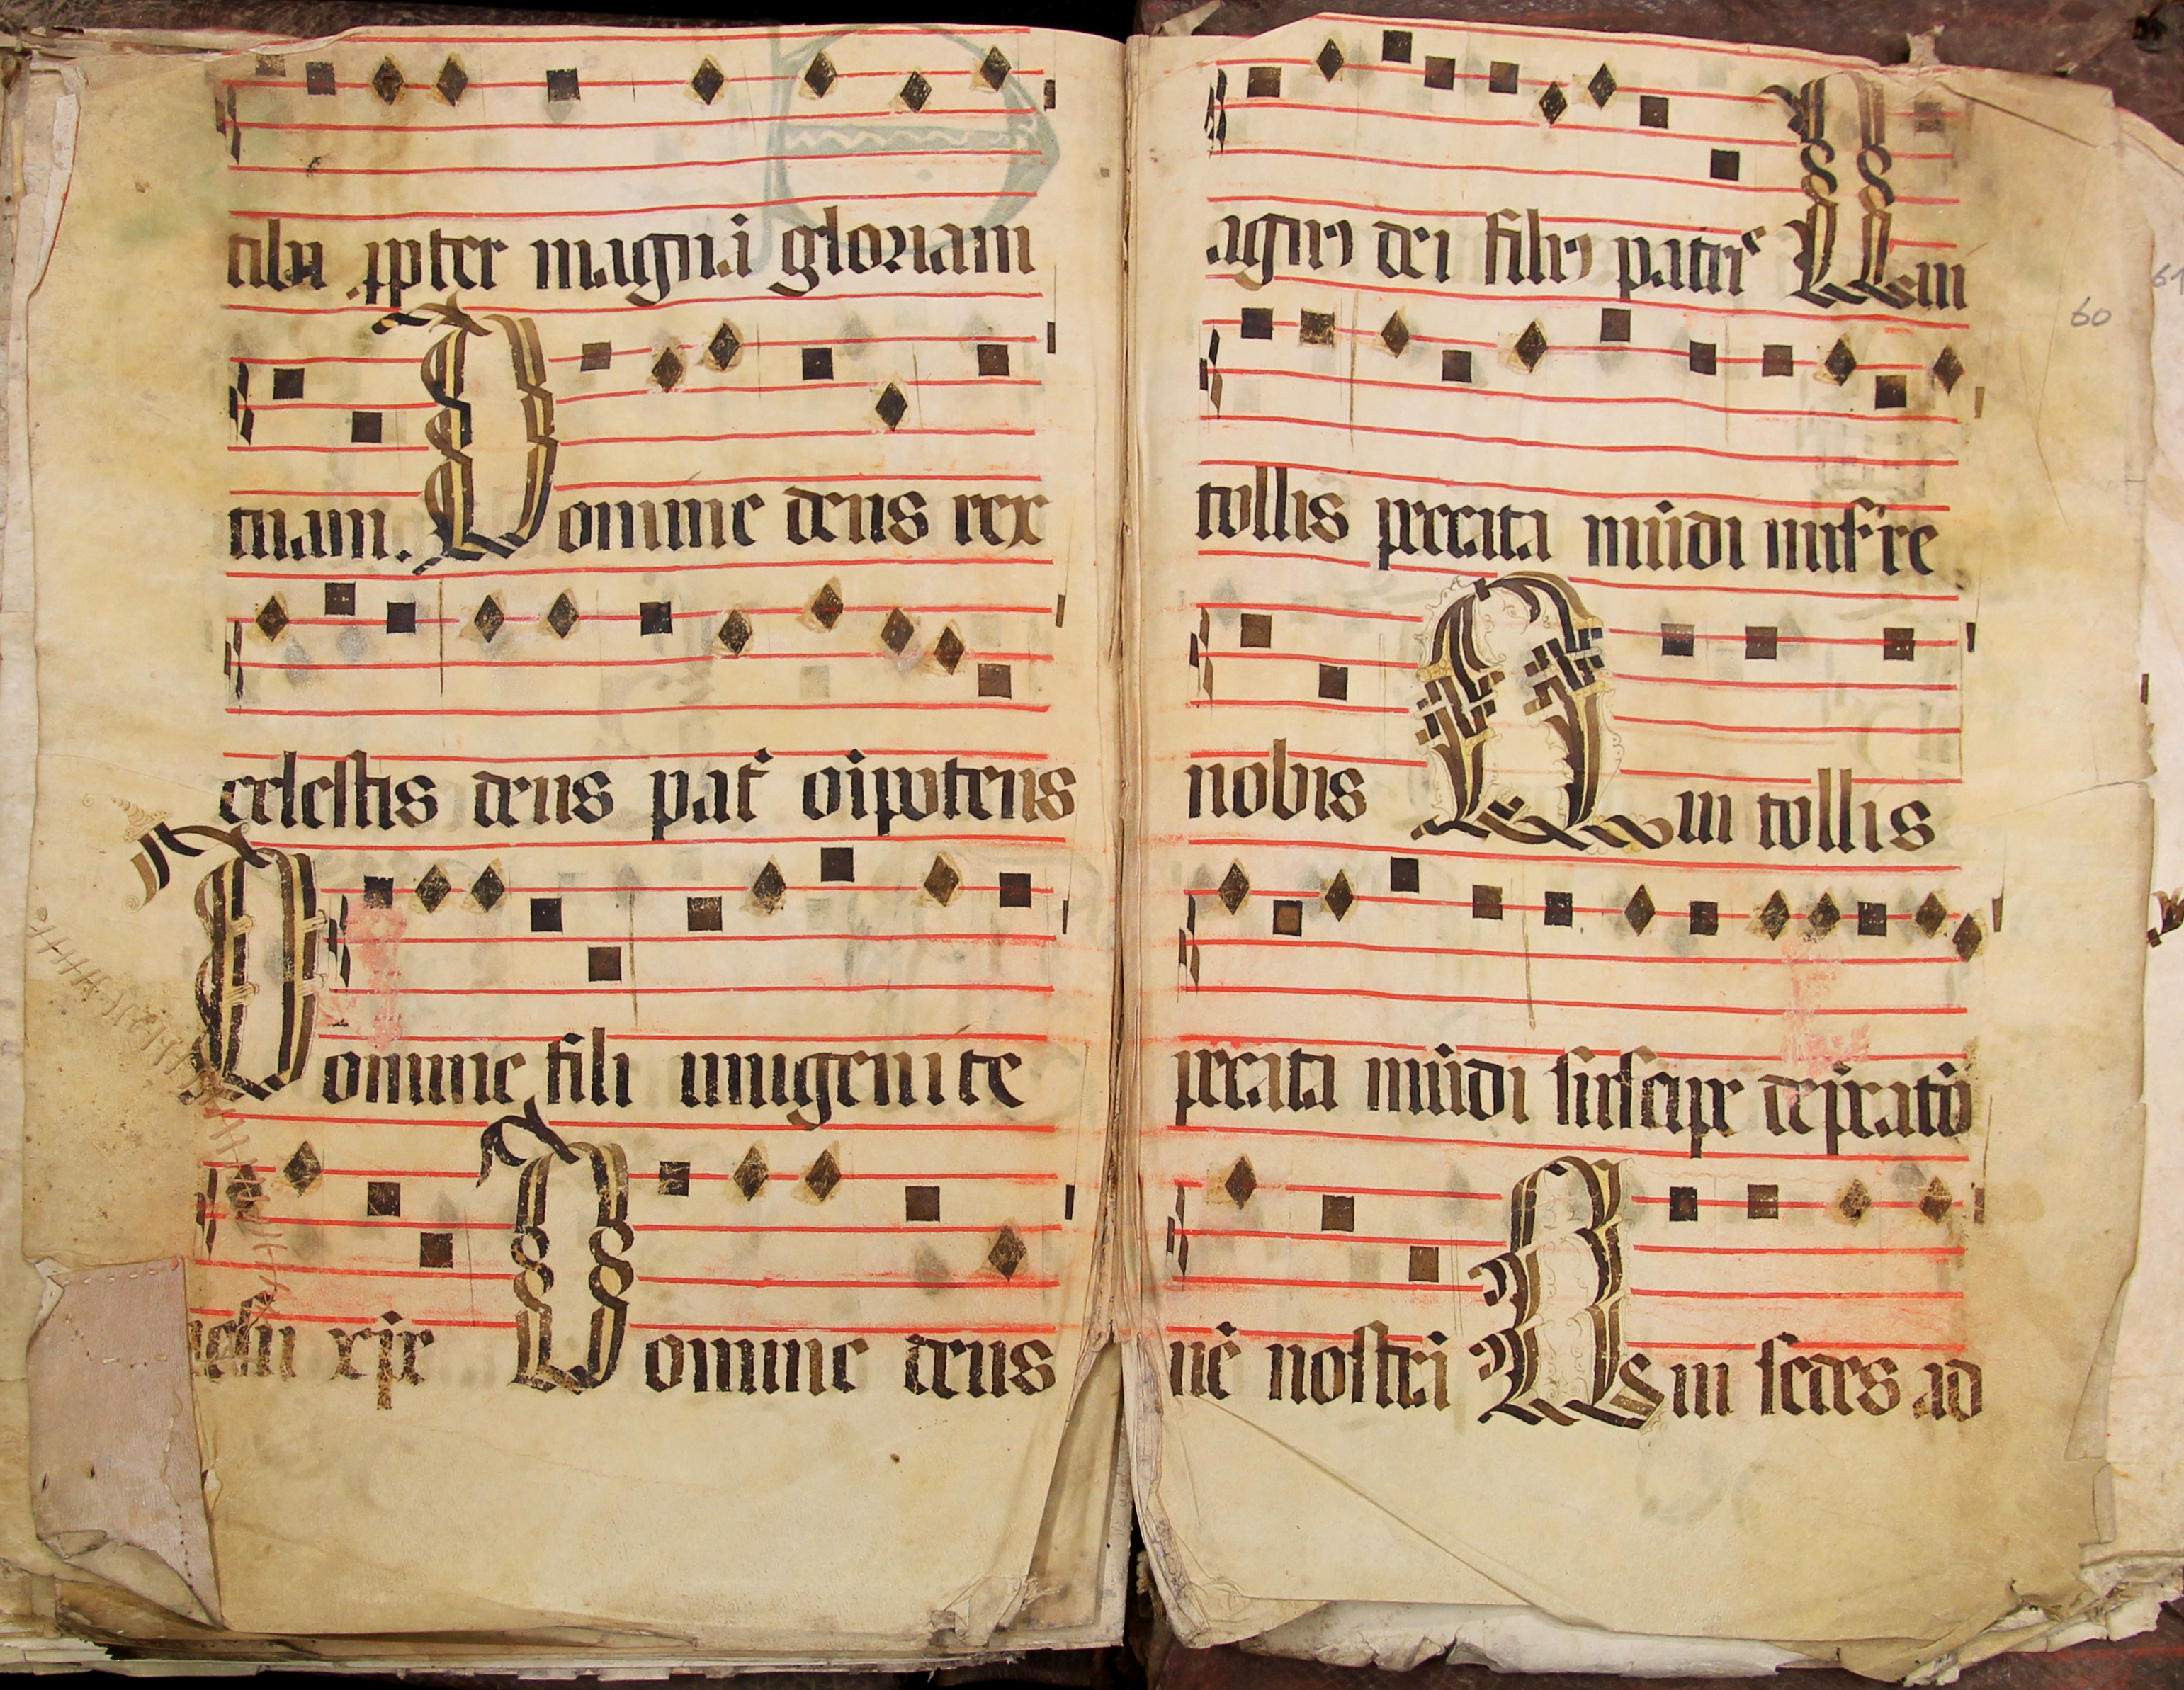 tibi ꝓpter magnā gloriam
tuam. Domine deus rex
celestis deus pat̄ oīpotens
Domine fili unigenite
iesu xp̄e Domine deus
agnꝯ dei filiꝯ patris Qui
60
61
tollis peccata mūdi misere
nobis Qui tollis
peccata mūdi suscipe dep̄catō
nē nostrā Qui sedes ad